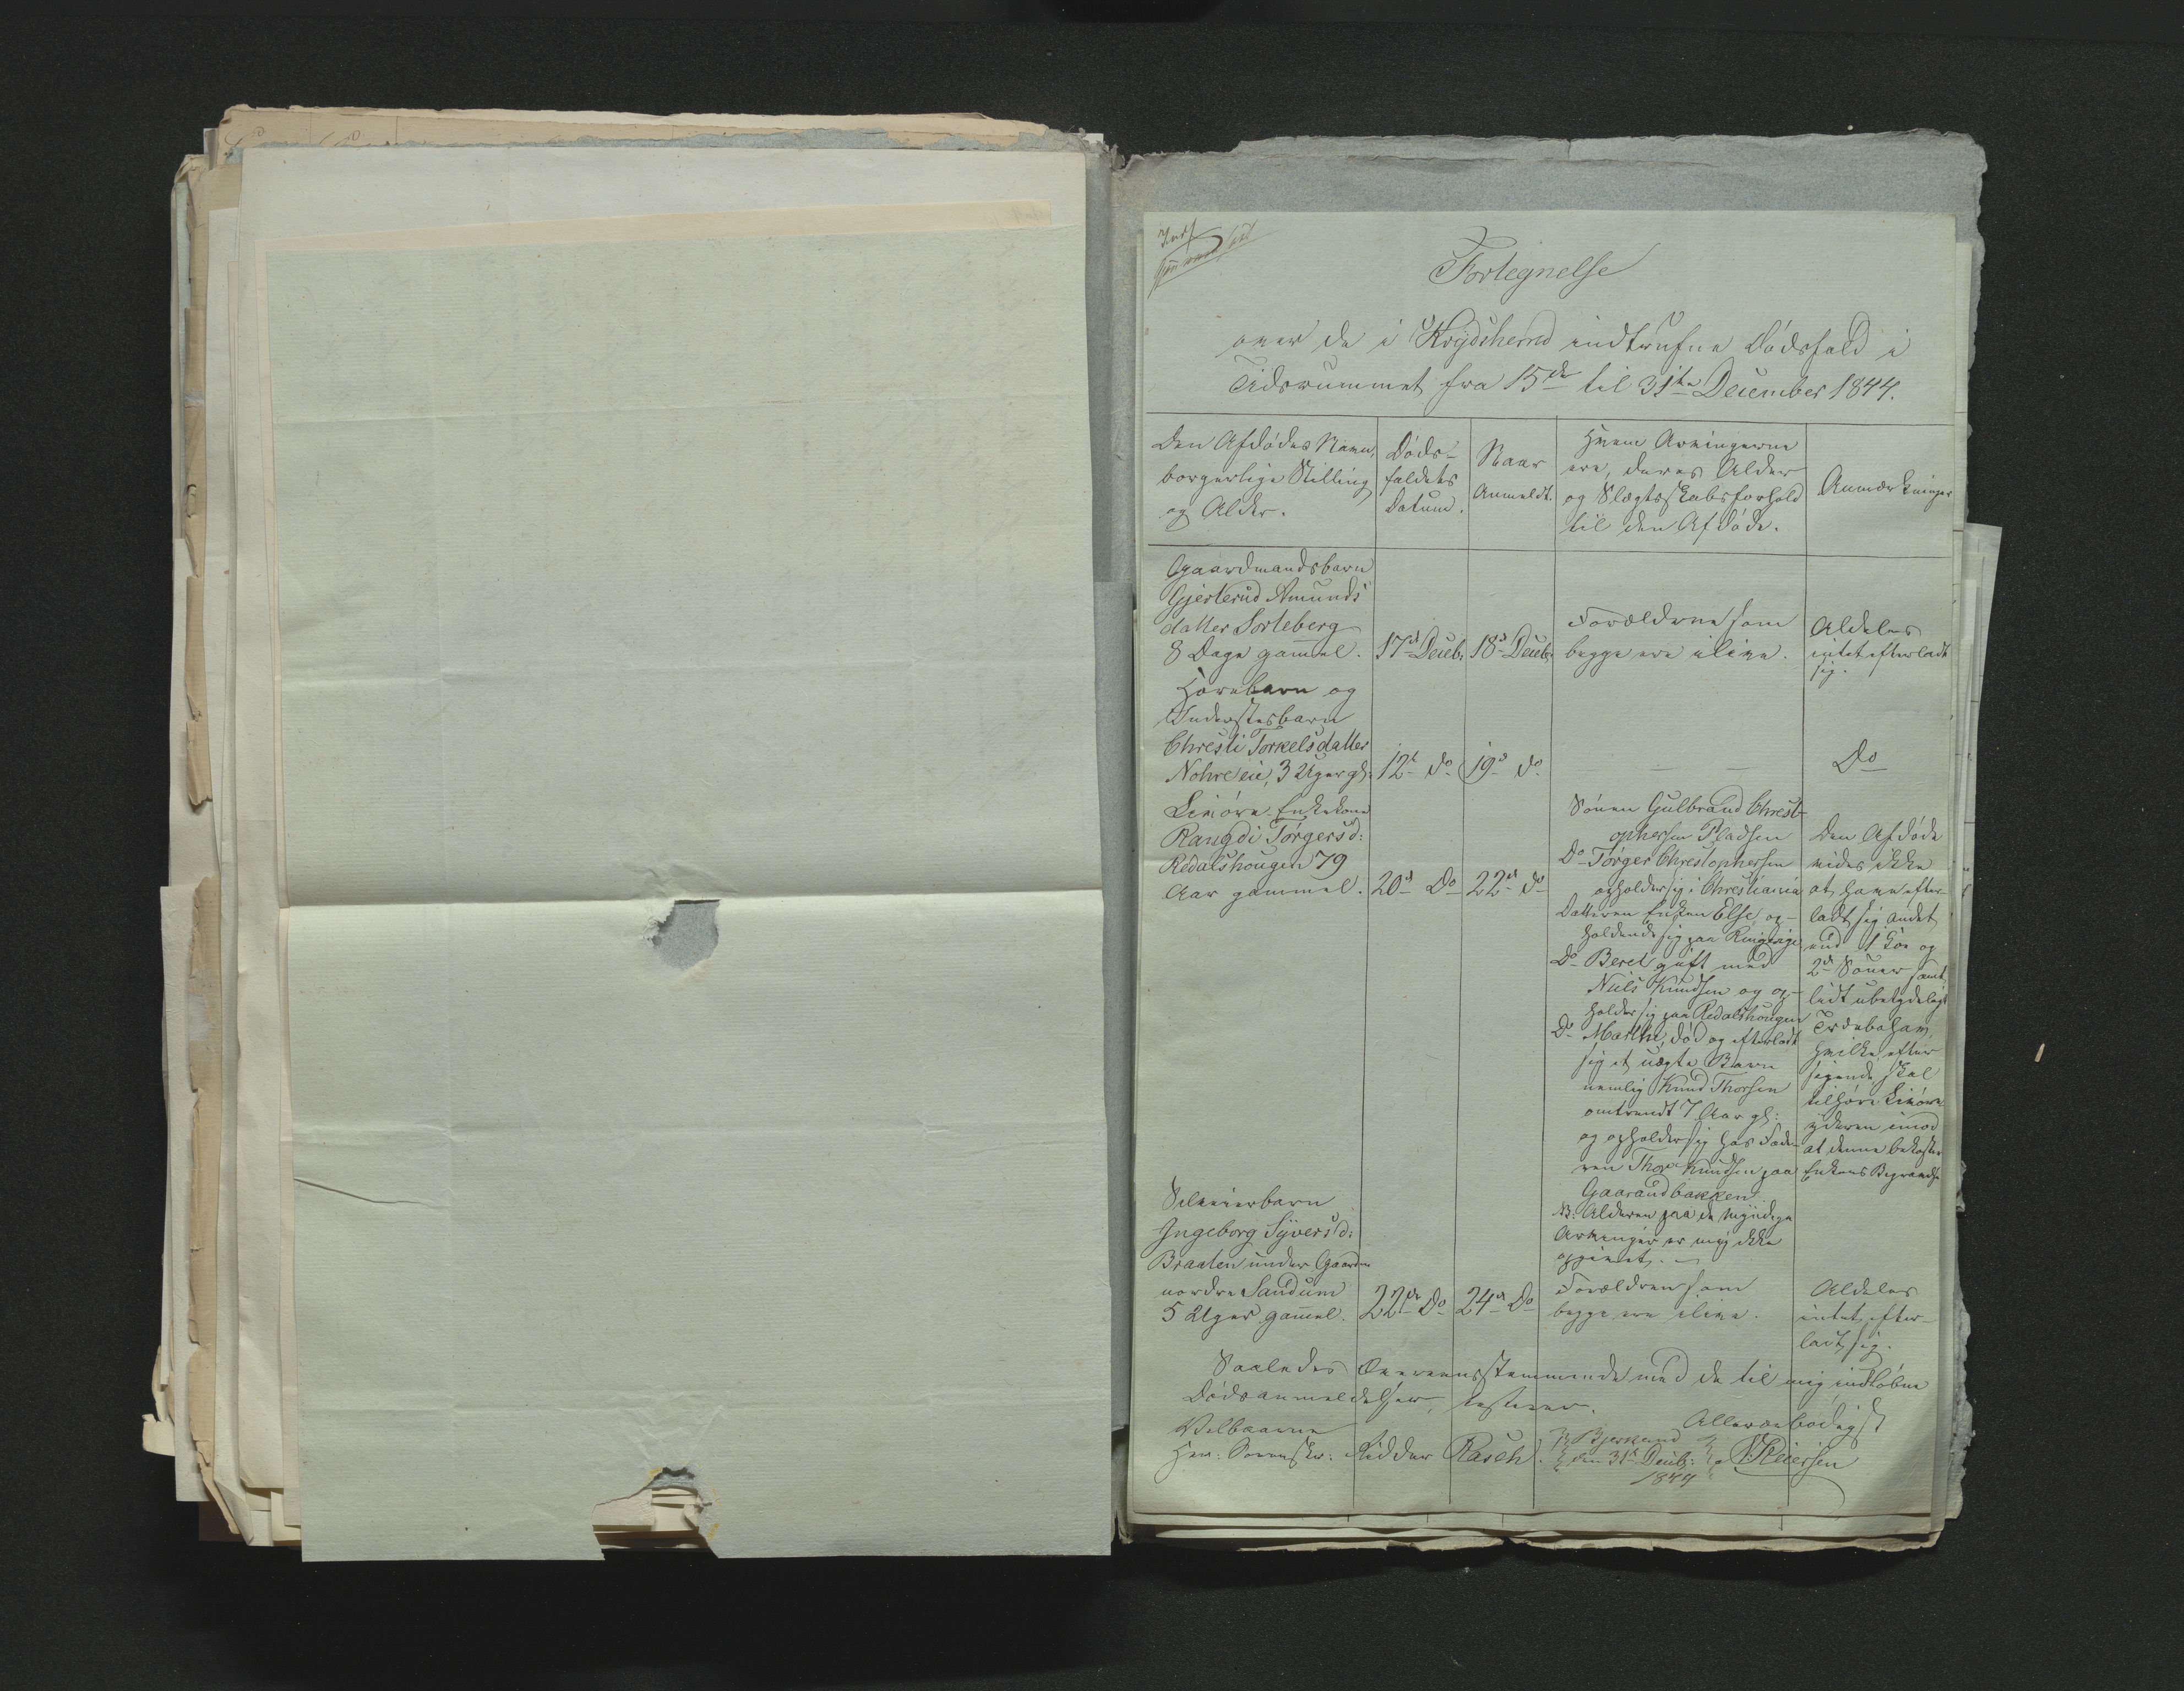 Fortegnelse
over de i Krydsherred indtrufne Dødsfald i
Tidsrummet fra 15de til 31te December 1844.
Den Afdødes Navn,
borgerlige Stilling
og Alder.
Døds-
faldets
Datum.
Naar
Anmeldt.
Hvem Arvingerne
ere, deres Alder
og Slægtskabsforhold
til den Afdøde.
Anmærkninger
Gaardmandsbarn
Gjertrud Amunds
datter Sorteberg
8 Dage gammel.
17d Decbr
18d Decbr
Forældrene som
begge ere ilive.
Aldeles
intet efterladt
sig.
Horebarn og
Inderstesbarn
Christi Torkelsdatter
Nohreeie, 3 Uger gl:
12t do
19d do
Do
Livøre Enkekone
Rangdi Torgersd:
Redalshougen 79
Aar gammel.
20d Do
22d do
Sønen Gulbrand Christ-
ophersen Pladsen
Do Torger Christophersen
opholder sig i Christiania
Datteren Enken Else, op-
holdende sig paa Ringerige
Do Beret gift med
Niels Knudsen og op-
holder sig paa Redalshougen
Do Marthe, død og efterladt
sig et uægte Barn
nemlig Knud Thorsen
omtrendt 7 Aar gl:
og opholder sig hos Fade-
ren Thor Knudsen paa
Gaaraudbakken
NB: Alderen paa de myndige
Arvinger er mig ikke
opgivet.
Den Afdøde
vides ikke
at have efter-
ladt sig andet
end 1 Koe og
2d Souer samt
lidt ubetydeligt
Indebohav,
hvilke efter
sigende skal
tilhøre Livøre
yderen imod
at denne bekoster
Enkens Begravelse
Selveierbarn
Ingeborg Syversd:
Braaten under Gaarden
nordre Sandum
5 Uger gammel.
22de Do
24d Do
Forældrene som
begge ere ilive.
Aldeles
intet efter-
ladt sig.
Saaledes Overeensstemmende med de til mig indløbne
Dødsanmeldelser, testerer.
Velbaarne
Herr: Sorenskr: Ridder Rasch.
Bjøreund
den 31t Decbr:
1844
Allerærbødigst
Reiersen